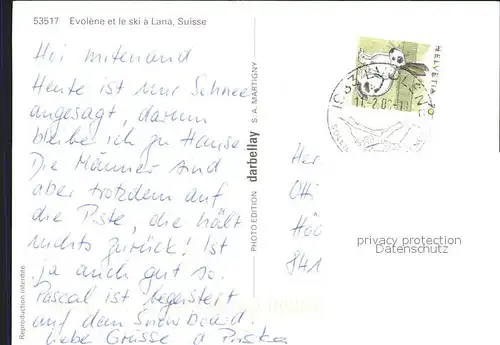 53517 Evolène et le ski à Lana, Suisse
Hoi mitenand
Heute ist nur Schnee
angesagt, darum
bleibe ich zu Hause
Die Männer sind
aber trotzdem auf
die Piste, die hält
nichts zurück! Ist
ja auch gut so.
Pascal ist begeistert
auf dem Snowboard.
Liebe Grüsse
Reproduction interdite
PHOTO EDITION darbellay S.A. MARTIGNY
HELVETIA 70
Her
Otti
Höö
841
privacy protection
Datenschutz